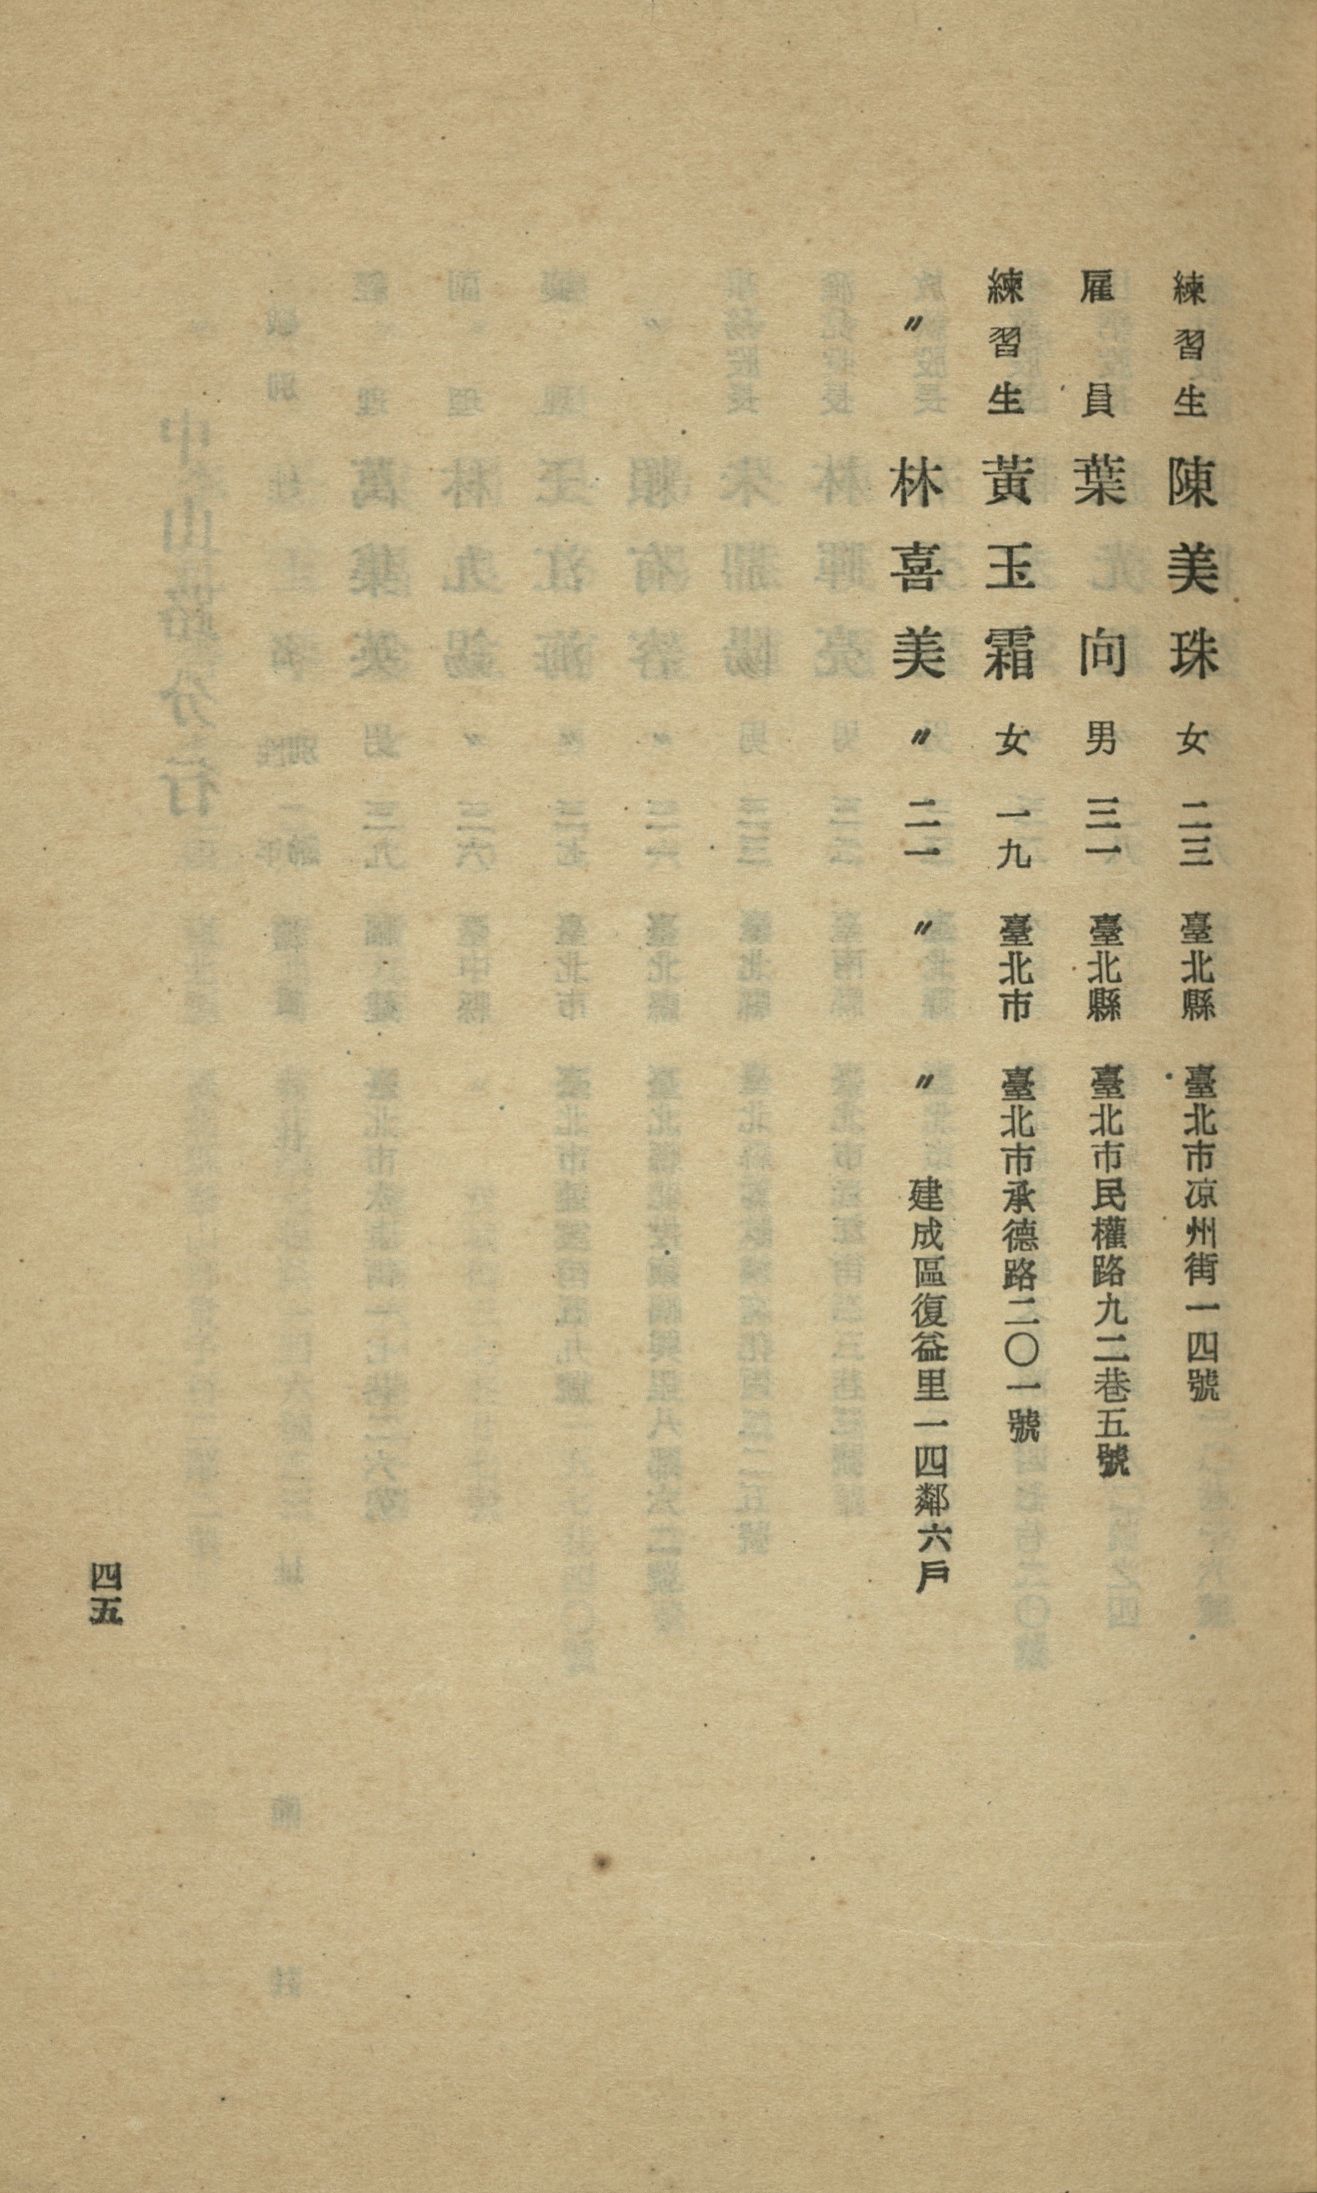 練習生 陳美珠 女 二三 臺北縣 臺北市涼州街一四號
雇員 葉向 男 三一 臺北縣 臺北市民權路九二巷五號
練習生 黃玉霜 女 一九 臺北市 臺北市承德路二〇一號
〃 林喜美 〃 二一 〃 〃 建成區復益里一四鄰六戶
四五